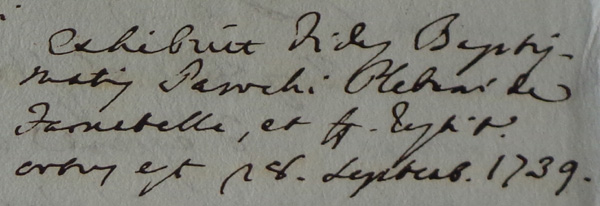 Exhibuit Fidem Baptis-
matis Parochi Plebani de
Farnetella, et
ortus est 28. Septemb. 1739.